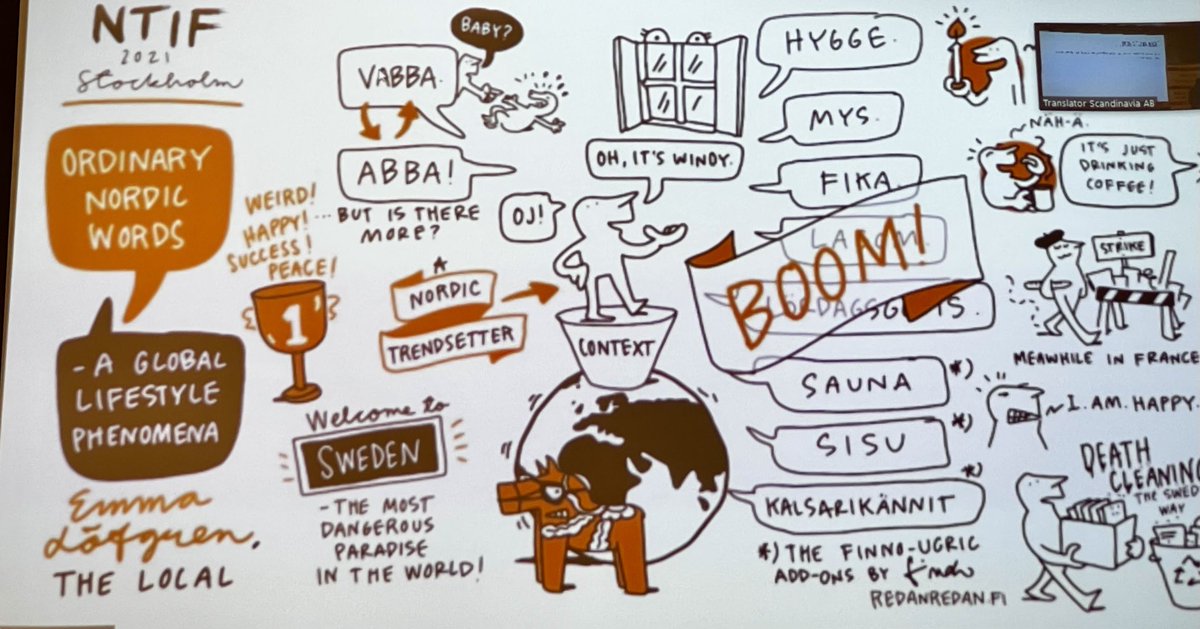 NTIF
2021
Stockholm
ORDINARY
NORDIC
WORDS
- A GLOBAL
LIFESTYLE
PHENOMENA
Emma
Löfgren,
THE LOCAL
WEIRD!
HAPPY!
SUCCESS!
PEACE!
1
BABY?
VABBA.
ABBA!
... BUT IS THERE
MORE?
A
NORDIC
TRENDSETTER
Welcome to
SWEDEN
- THE MOST
DANGEROUS
PARADISE
IN THE WORLD!
OH, IT'S WINDY.
OJ!
CONTEXT
HYGGE.
MYS.
FIKA.
LAGOM.
LÖRDAGSGODIS.
BOOM!
SAUNA *)
SISU *)
KALSARIKÄNNIT *)
*) THE FINNO-UGRIC
ADD-ONS BY
REDANREDAN.FI
Translator Scandinavia AB
~NÄH-Ä.
IT'S JUST
DRINKING
COFFEE!
STRIKE
MEAWHILE IN FRANCE
~I.AM.HAPPY.
DEATH
CLEANING
THE SWED
WAY